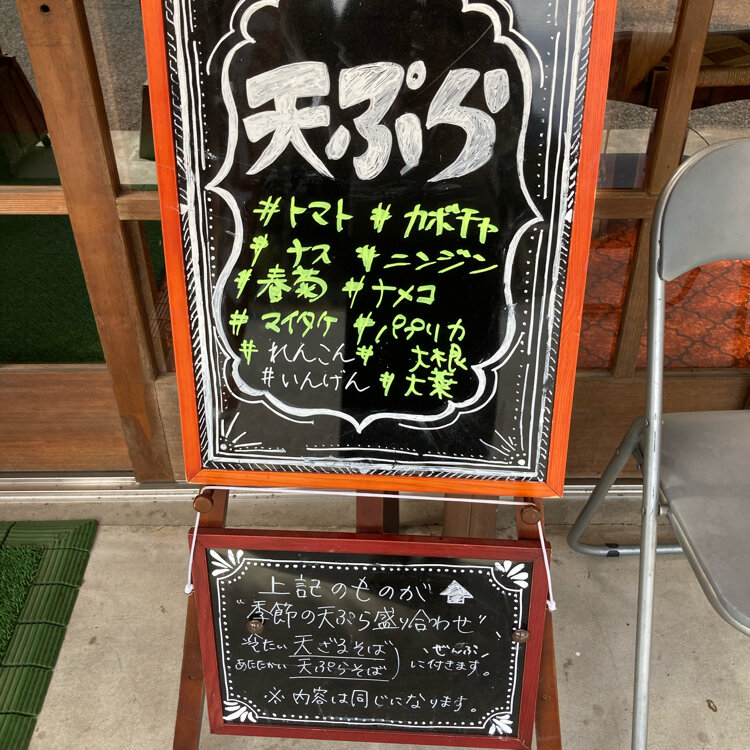 天ぷら
#トマト #カボチャ
#ナス #ニンジン
#春菊 #ナメコ
#マイタケ #パプリカ
#れんこん #大根
#いんげん #大葉
上記のものが
"季節の天ぷら盛り合わせ"
冷たい 天ざるそば
あたたかい 天ぷらそば
ぜんぶ
に付きます。
※内容は同じになります。